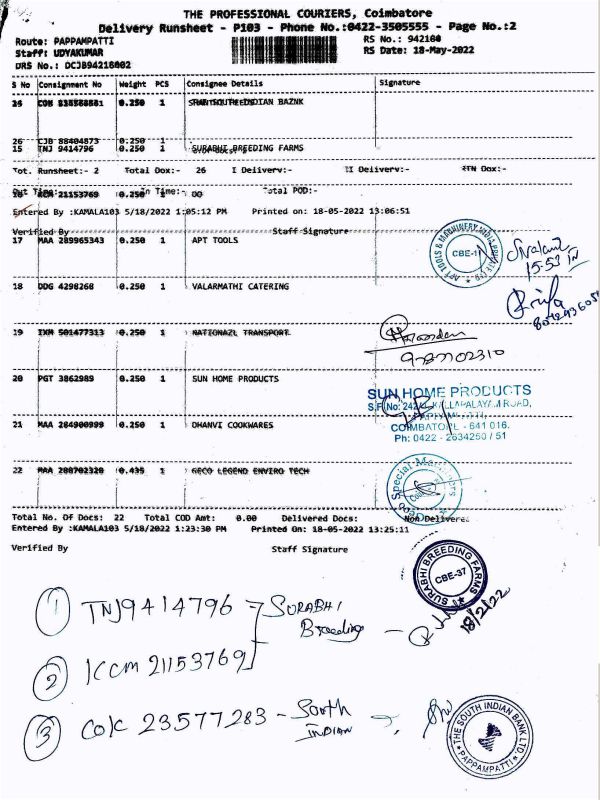 THE PROFESSIONAL COURIERS, Coimbatore
Delivery Runsheet - P103 - Phone No.:0422-3505555 - Page No.:2
Route: PAPPAMPATTI RS No.: 942160
Staff: UDYAKUMAR RS Date: 18-May-2022
DRS No.: DCJB94216002
S No Consignment No Weight PCS Consignee Details Signature
0.250 1
26 CJB 88404873 0.250 1
15 TNJ 9414796 0.250 1 SURABHI BREEDING FARMS
Tot. Runsheet:- 2 Total Dox:- 26 I Delivery:- II Delivery:- RTN Dox:-
Out Time: In Time:- Total POD:-
KCM 21153769 0.250 1
Entered By :KAMALA103 5/18/2022 1:05:12 PM Printed on: 18-05-2022 13:06:51
Verified By Staff Signature
17 MAA 289965343 0.250 1 APT TOOLS
APT TOOLS & MACHINERY INDIA PRIVATE LTD
CBE-11
15-53
18 DDG 4298268 0.250 1 VALARMATHI CATERING
19 IXM 501477313 0.250 1 NATIONAZL TRANSPORT
9787702310
20 PGT 3862989 0.250 1 SUN HOME PRODUCTS
SUN HOME PRODUCTS
S.F.No: 242/ KALLAPALAYAM ROAD,
COIMBATORE - 641 016.
Ph: 0422 - 2634250 / 51
21 MAA 284900999 0.250 1 DHANVI COOKWARES
22 MAA 288702320 0.435 1 GECO LEGEND ENVIRO TECH
Total No. Of Docs: 22 Total COD Amt: 0.00 Delivered Docs: Non Delivered
Entered By :KAMALA103 5/18/2022 1:23:30 PM Printed On: 18-05-2022 13:25:11
Verified By Staff Signature
SURABHI BREEDING FARMS
CBE-37
18/2/22
1 TNJ9414796 SURABHI
Breeding
2 KCM 21153769
3 COK 23577283 - South
INDIAN
THE SOUTH INDIAN BANK LTD.
PAPPAMPATTI